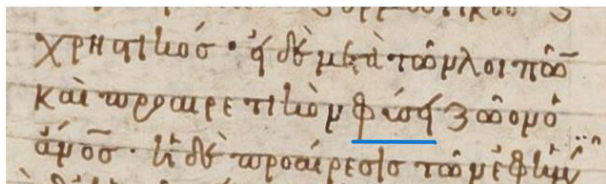 χρηστικός· εἰ δὲ μετὰ τῶν λοιπῶν
καὶ προαιρετικὸν φύσει ζῶον ὁ
ἄνος· ἡ δὲ προαίρεσις τῶν ἐφ' ἡμῖν